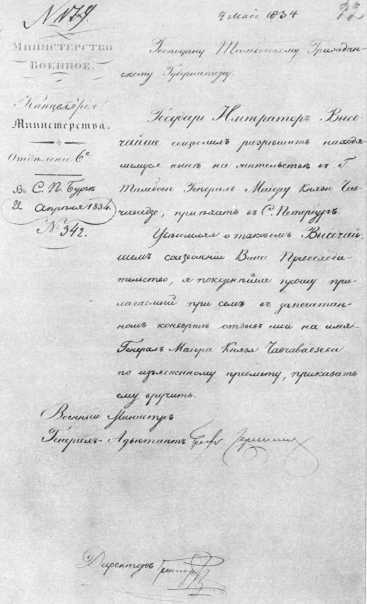 9 Мая 1834
Министерство
Военное.
Канцелярія
Министерства.
Отделеніе 6е
въ С. П. Бургѣ
Апрѣля 1834.
№ 342.
Господину Тамбовскому Граждан-
скому Губернатору.
Государь Императоръ Высо-
чайше соизволилъ разрѣшить находя-
щемуся нынѣ на жительствѣ въ Г.
Тамбовѣ Генералъ Маіору Князю Чав-
чавадзе, пріѣхать въ С. Петербургъ.
Увѣдомляя о таковомъ Высочай-
шемъ соизволеніи Ваше Превосходи-
тельство, я покорнѣйше прошу при-
лагаемый при семъ въ запечатан-
номъ конвертѣ отзывъ мой на имя
Генералъ Маіора Князя Чавчавадзева
по изъясненному предмету, приказать
ему вручить.
Военный Министръ
Генералъ-Адъютантъ Графъ
Директоръ